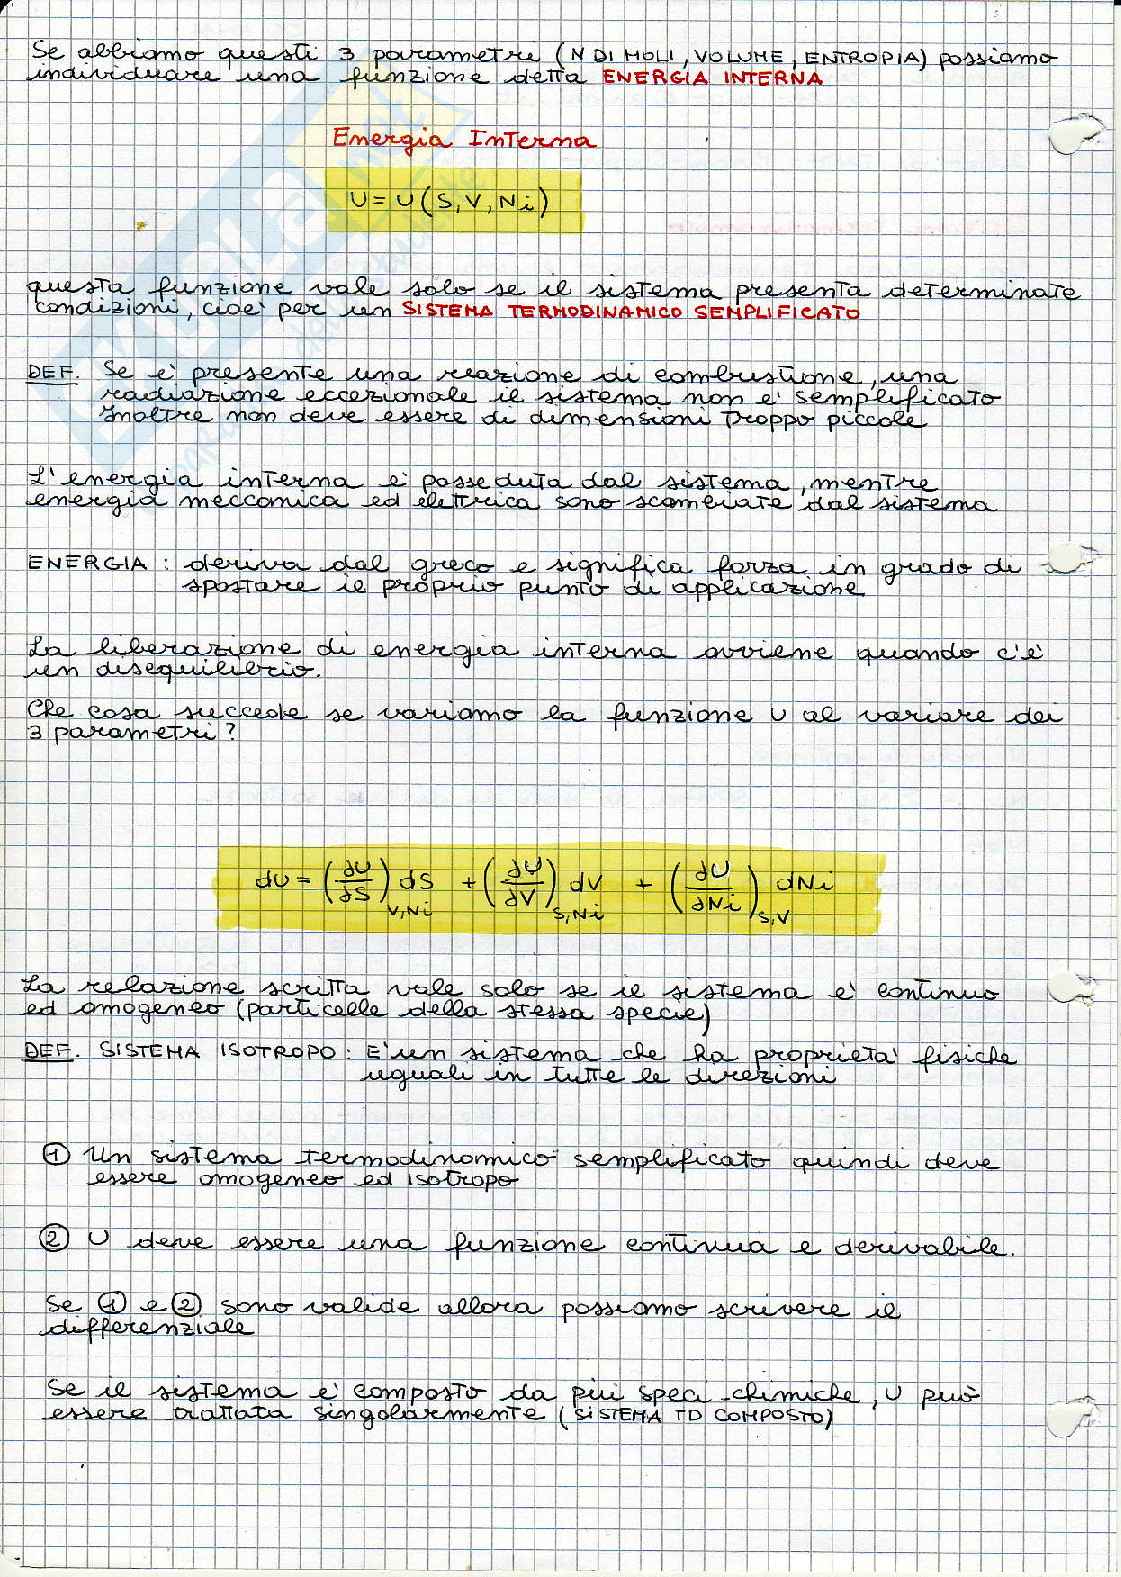 Se abbiamo questi 3 parametri (N DI MOLI, VOLUME, ENTROPIA) possiamo
individuare una funzione detta ENERGIA INTERNA
Energia Interna
U = U(S, V, Ni)
questa funzione vale solo se il sistema presenta determinate
condizioni, cioè per un SISTEMA TERMODINAMICO SEMPLIFICATO
DEF. Se è presente una reazione di combustione, una
radiazione eccezionale il sistema non è semplificato
Inoltre non deve essere di dimensioni troppo piccole
L'energia interna è posseduta dal sistema, mentre
energia meccanica ed elettrica sono scambiate dal sistema
ENERGIA : deriva dal greco e significa forza in grado di
spostare il proprio punto di applicazione
La liberazione di energia interna avviene quando c'è
un disequilibrio.
Che cosa succede se variamo la funzione U al variare dei
3 parametri?
dU = (∂U/∂S)V,Ni dS + (∂U/∂V)S,Ni dV + (∂U/∂Ni)S,V dNi
La relazione scritta vale solo se il sistema è continuo
ed omogeneo (particelle della stessa specie)
DEF. SISTEMA ISOTROPO : E' un sistema che ha proprietà fisiche
uguali in tutte le direzioni
① Un sistema termodinamico semplificato quindi deve
essere omogeneo ed isotropo
② U deve essere una funzione continua e derivabile.
Se ① e ② sono valide allora possiamo scrivere il
differenziale
Se il sistema è composto da più speci chimiche, U può
essere trattata singolarmente (SISTEMA TD COMPOSTO)